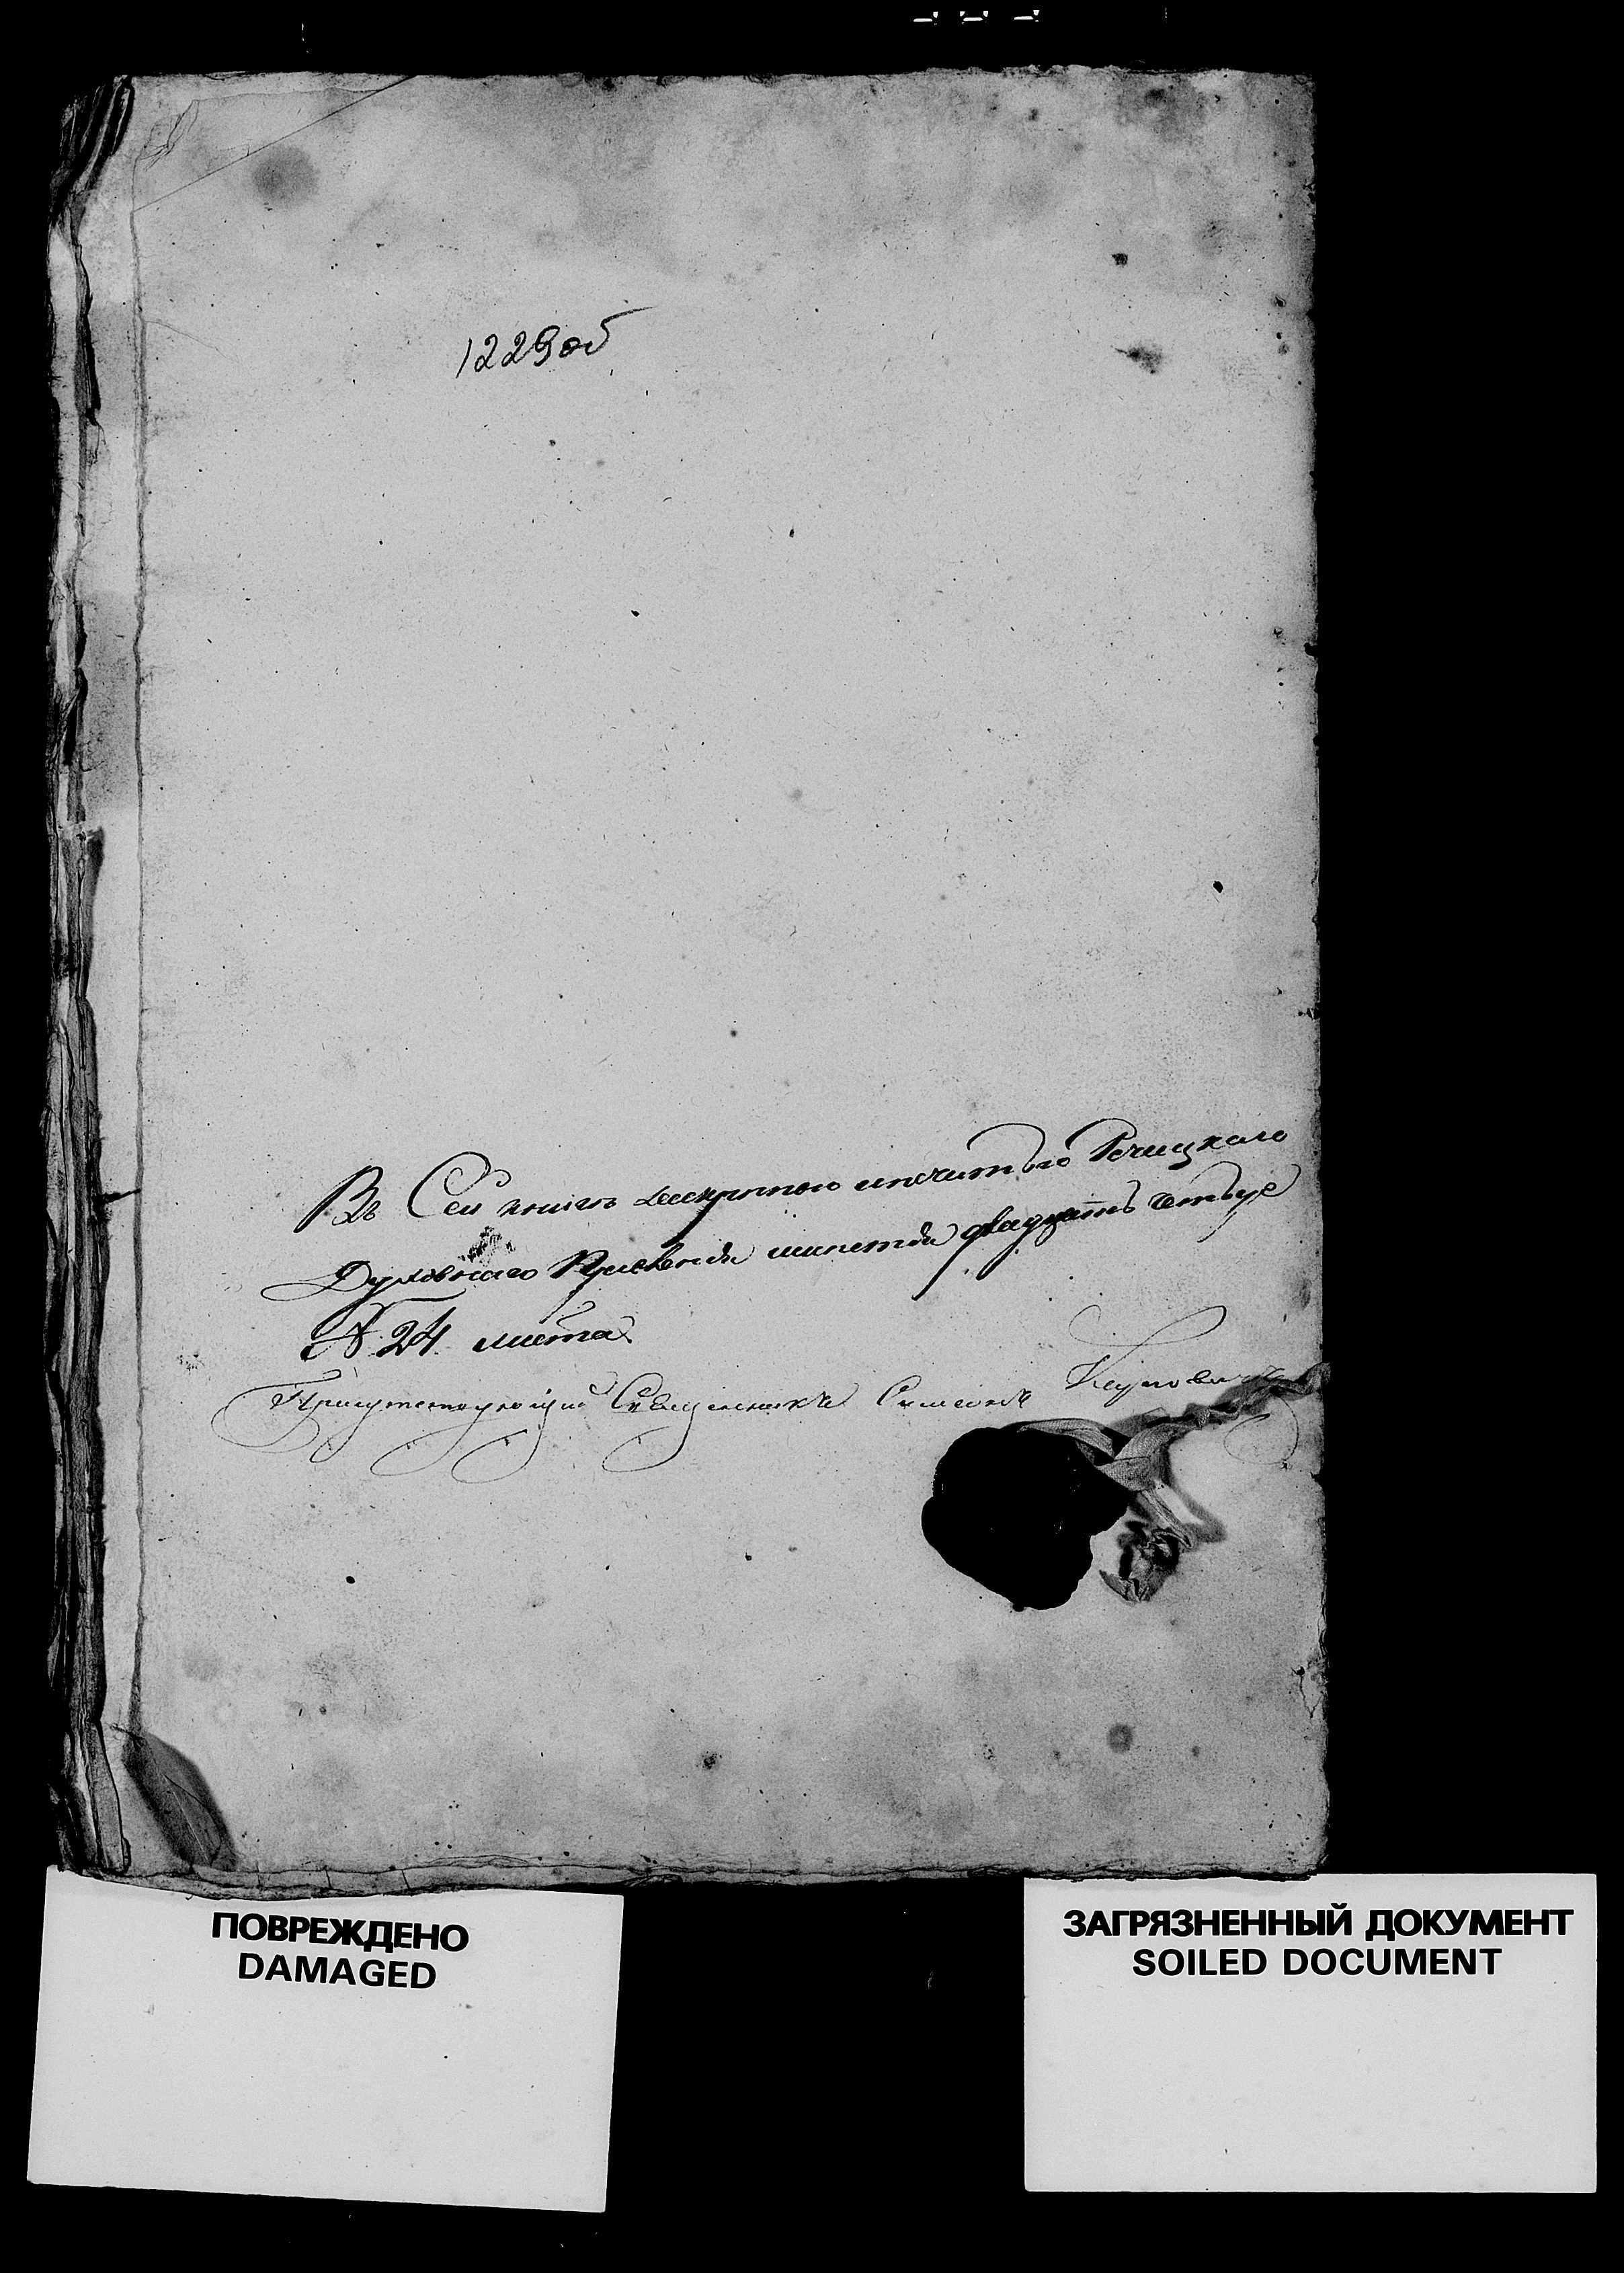 1229 об
Въ Сей книге шнуромъ и печатью Речицкаго
Духовнаго Правленія листовъ двадцать четыре
№ 24 листа
Присутствующій Священникъ Симеонъ
ПОВРЕЖДЕНО
DAMAGED
ЗАГРЯЗНЕННЫЙ ДОКУМЕНТ
SOILED DOCUMENT